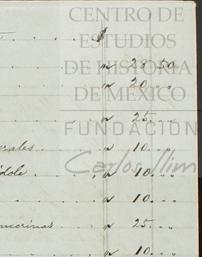 CENTRO DE
ESTUDIOS
DE HISTORIA
DE MÉXICO
FUNDACIÓN
Carlos Slim
$
" 28 50
" 20 . .
" 25 . .
rales . . " 10 . .
dole . . . " 10 . .
" 10 . .
ncerinas . . " 25 . .
" 10 . .